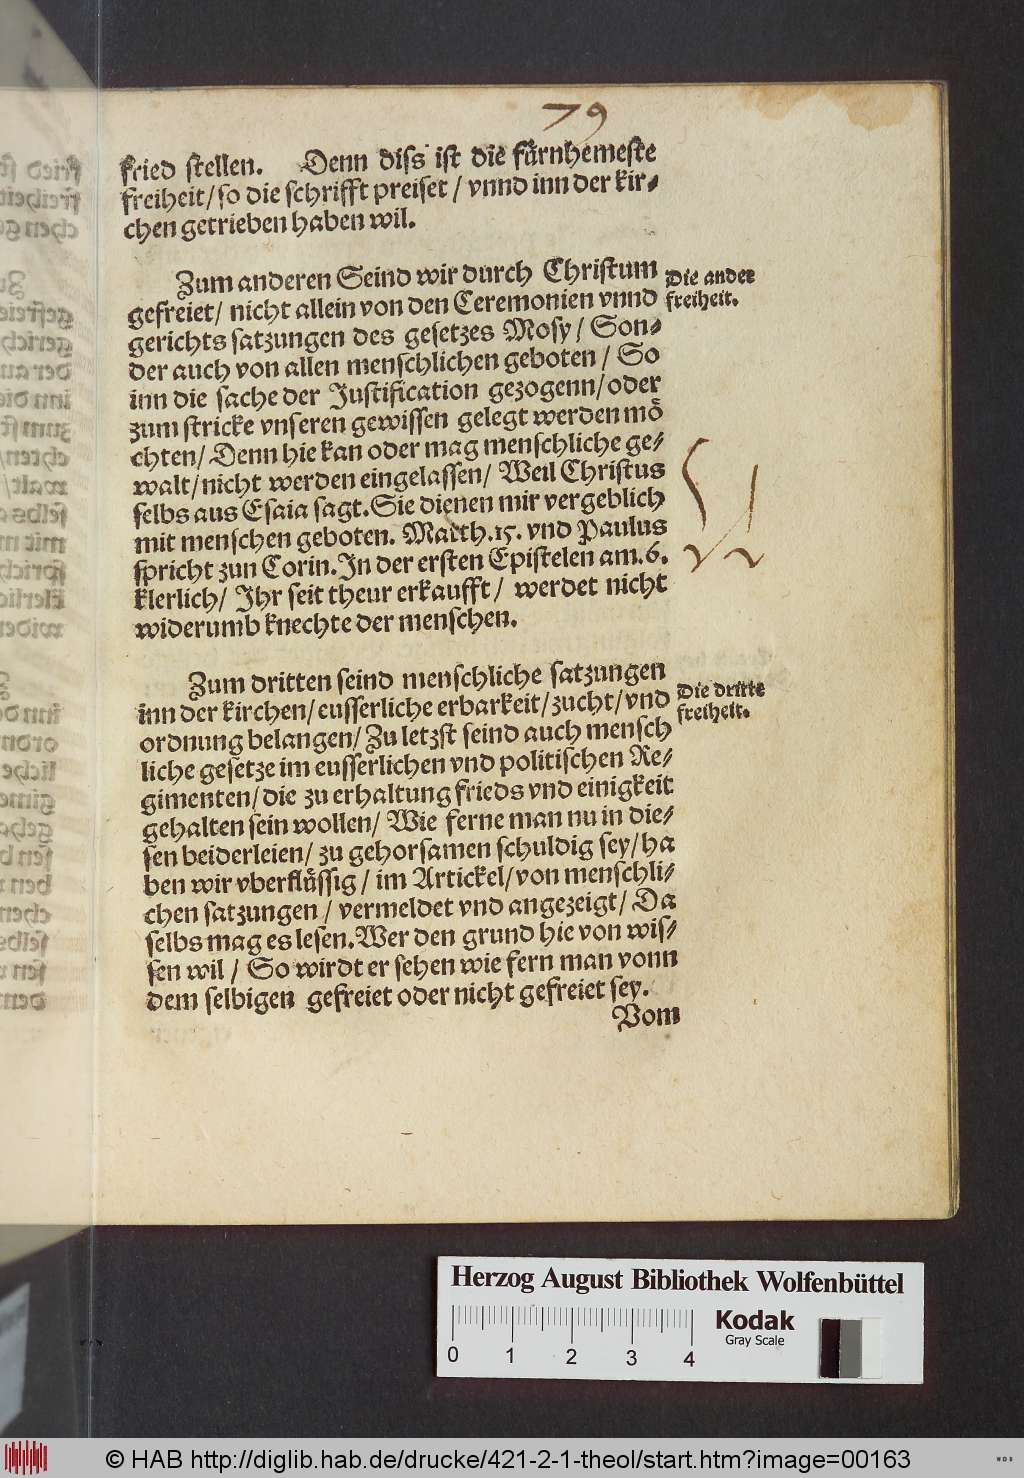 79
fried stellen. Denn diss ist die fürnhemeste
freiheit/ so die schrifft preiset / vnnd inn der kir-
chen getrieben haben wil.
Zum anderen Seind wir durch Christum
Die ander
gefreiet/ nicht allein von den Ceremonien vnnd
freiheit.
gerichts satzungen des gesetzes Mosy/ Son-
der auch von allen menschlichen geboten / So
inn die sache der Justification gezogenn/ oder
zum stricke vnseren gewissen gelegt werden mö
chten/ Denn hie kan oder mag menschliche ge-
walt/ nicht werden eingelassen/ Weil Christus
selbs aus Esaia sagt. Sie dienen mir vergeblich
mit menschen geboten. Matth. 15. vnd Paulus
spricht zun Corin. In der ersten Epistelen am. 6.
klerlich/ Ihr seit theur erkaufft/ werdet nicht
widerumb knechte der menschen.
Zum dritten seind menschliche satzungen
Die dritte
inn der kirchen/ eusserliche erbarkeit/ zucht/ vnd
freiheit.
ordnung belangen/ Zu letzst seind auch mensch
liche gesetze im eusserlichen vnd politischen Re-
gimenten/ die zu erhaltung frieds vnd einigkeit
gehalten sein wollen/ Wie ferne man nu in die-
sen beiderleien/ zu gehorsamen schuldig sey/ ha
ben wir vberflüssig / im Artickel/ von menschli-
chen satzungen / vermeldet vnd angezeigt/ Da
selbs mag es lesen. Wer den grund hie von wis-
sen wil / So wirdt er sehen wie fern man vonn
dem selbigen gefreiet oder nicht gefreiet sey.
Vom
Herzog August Bibliothek Wolfenbüttel
0 1 2 3 4
Kodak
Gray Scale
© HAB http://diglib.hab.de/drucke/421-2-1-theol/start.htm?image=00163